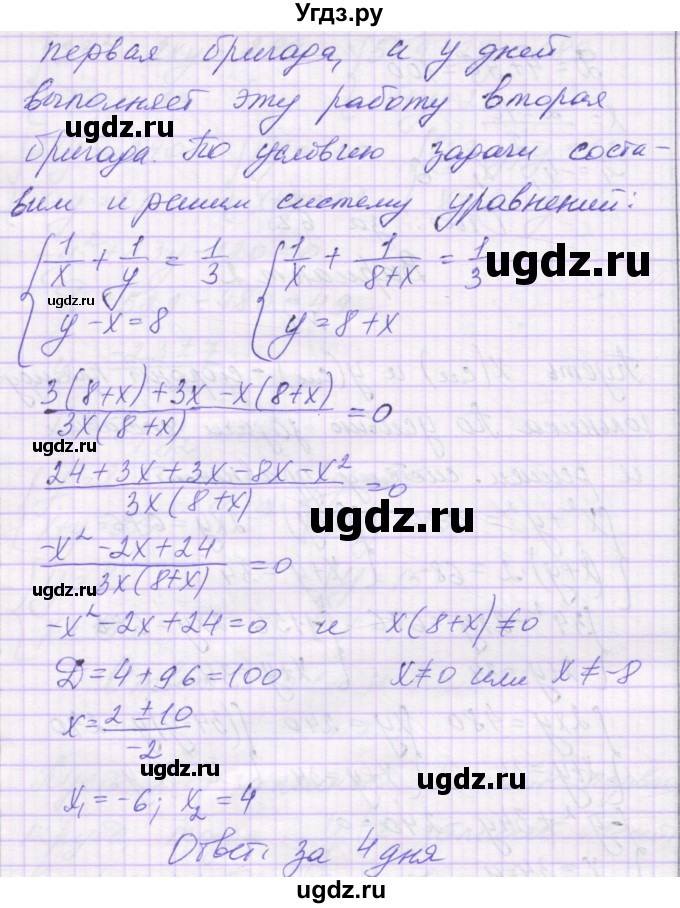 Угдз.ру
первая бригада, а у дней
выполняет эту работу вторая
ugdz.ru
бригада. По условию задачи соста-
вим и решим систему уравнений:
{ 1/x + 1/y = 1/3   { 1/x + 1/(8+x) = 1/3
ugdz.ru
ugdz.ru
y - x = 8   y = 8 + x
(3(8+x) + 3x - x(8+x))/(3x(8+x)) = 0
ugdz.ru
(24 + 3x + 3x - 8x - x²)/(3x(8+x)) = 0
ugdz.ru
(-x² - 2x + 24)/(3x(8+x)) = 0
ugdz.ru
-x² - 2x + 24 = 0 и x(8+x) ≠ 0
ugdz.ru
Д = 4 + 96 = 100   x ≠ 0 или x ≠ -8
x = (2 ± 10)/(-2)
ugdz.ru
x₁ = -6; x₂ = 4
ugdz.ru
Ответ: за 4 дня
ugdz.ru